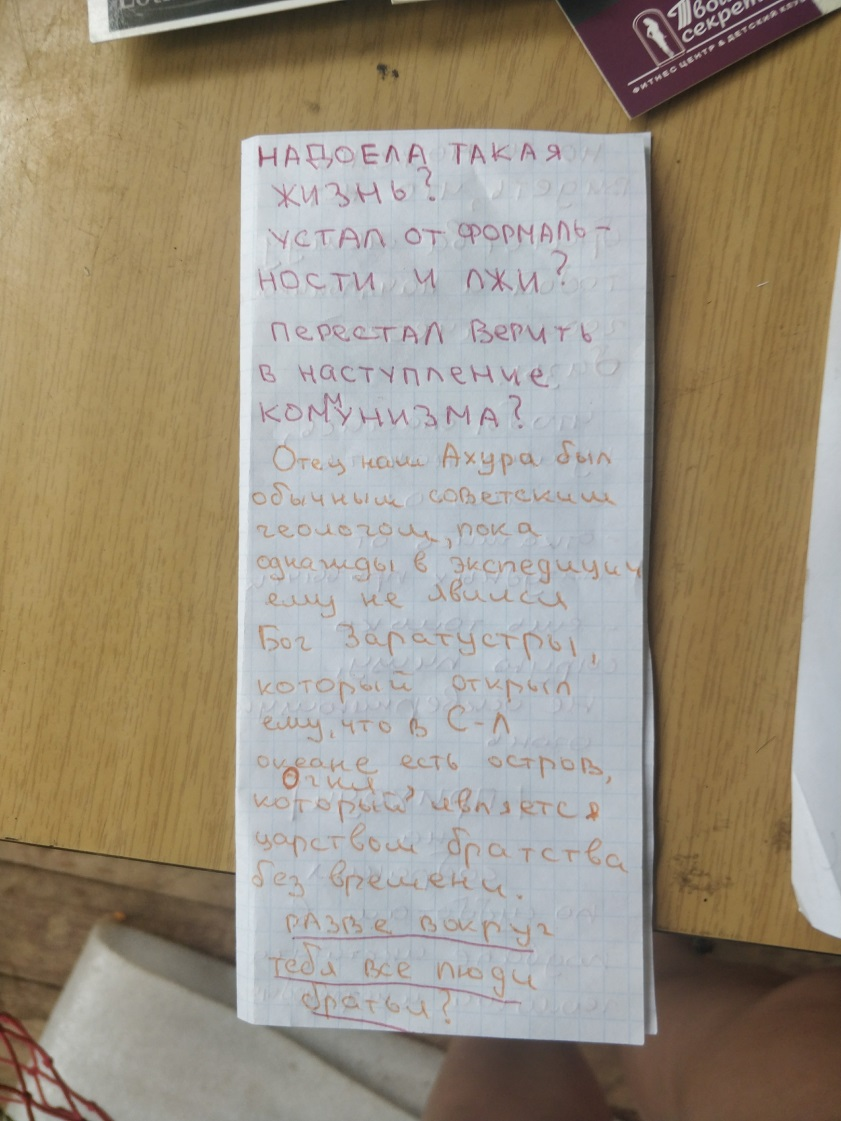 Твой
секрет
ФИТНЕС ЦЕНТР & ДЕТСКИЙ КЛУБ
НАДОЕЛА ТАКАЯ
ЖИЗНЬ?
УСТАЛ ОТ ФОРМАЛЬ-
НОСТИ И ЛЖИ?
ПЕРЕСТАЛ ВЕРИТЬ
В НАСТУПЛЕНИЕ
КОММУНИЗМА?
Отец наш Ахура был
обычным советским
геологом, пока
однажды в экспедиции
ему не явился
Бог Заратустры,
который открыл
ему, что в С-Л
океане есть остров,
Огня,
который является
царством братства
без времени.
РАЗВЕ ВОКРУГ
тебя все люди
братья?